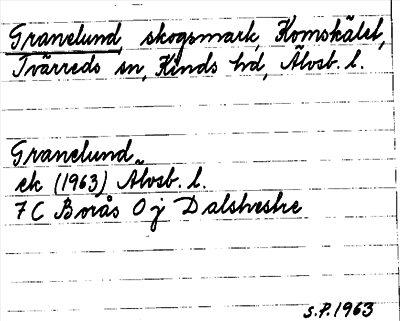 Granelund skogsmark, Komskälet,
Tvärreds sn, Kinds hd, Älvsb. l.
Granelund
ek (1963) Älvsb. l.
7 C Borås 0 j Dalstrestre
S.P. 1963